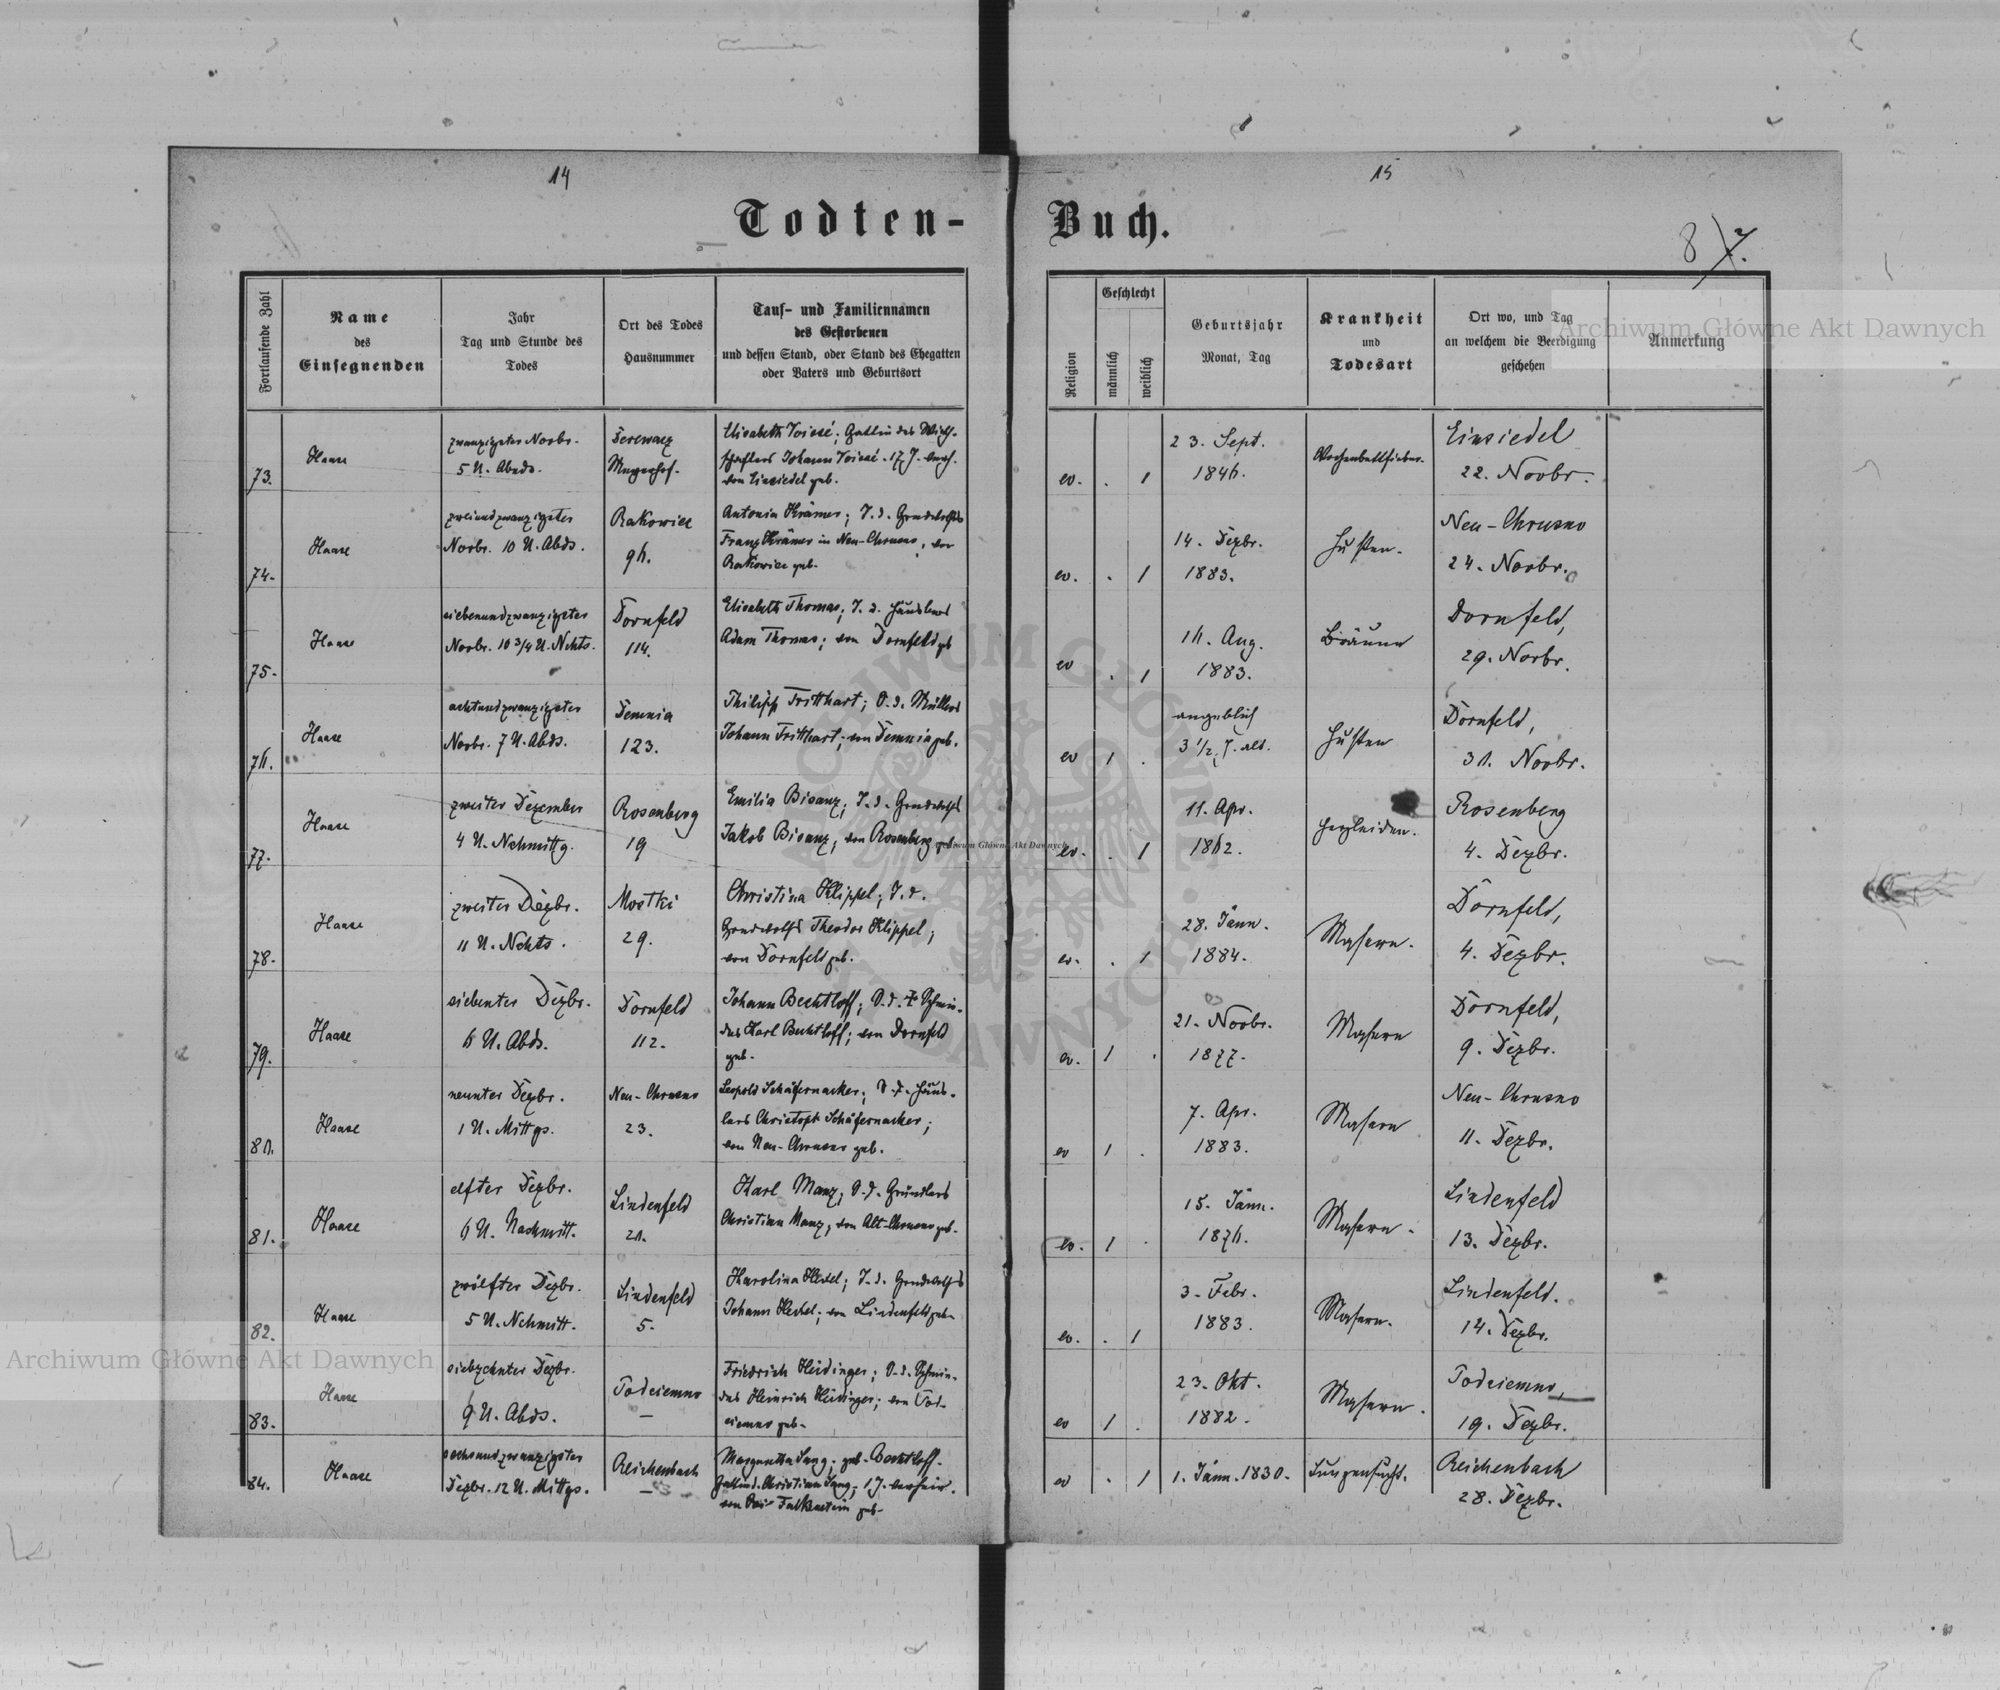 14
15
Todten-
Buch.
8 7.
Fortlaufende Zahl
Name
des
Einsegnenden
Jahr
Tag und Stunde des
Todes
Ort des Todes
Hausnummer
Tauf- und Familiennamen
des Gestorbenen
und dessen Stand, oder Stand des Ehegatten
oder Vaters und Geburtsort
Religion
Geschlecht
männlich
weiblich
Geburtsjahr
Monat, Tag
Krankheit
und
Todesart
Ort wo, und Tag
an welchem die Beerdigung
geschehen
Anmerkung
73.
Haase
zwanzigster Novbr.
5 U. Abends.
Derewacz
Mayerhof.
Elisabeth
Gattin des Wirth-
schafters Johann
von Einsiedel geb.
ev. . 1
23. Sept.
1846.
Wochenbettfieber.
Einsiedel
22. Novbr.
74.
Haase
zweiundzwanzigster
Novbr. 10 U. Abds.
Rakowiec
96.
Antonia Krämer; T. d. Grndwrths
Franz Krämer in Neu-Chrusno; von
Rakowiec geb.
ev. . 1
14. Dezbr.
1883.
Husten.
Neu-Chrusno
24. Novbr.
75.
Haase
siebenundzwanzigster
Novbr. 10 3/4 U. Nchts.
Dornfeld
114.
Elisabeth Thomas; T. d. Häuslers
Adam Thomas; von Dornfeld gb
ev . 1
16. Aug.
1883.
Bräune
Dornfeld,
29. Novbr.
76.
Haase
achtundzwanzigster
Novbr. 7 U. Abds.
Demnia
123.
Philipp Tritthart; S. d. Müllers
Johann Tritthart; von Demnia geb.
ev 1 .
angeblich
3 1/2 J. alt.
Husten
Dornfeld,
30. Novbr.
77.
Haase
zweiter Dezember
4 U. Nchmittg.
Rosenberg
19
Emilia Bisanz; T. d. Grndwrths
Jakob Bisanz; von Rosenberg geb
ev. . 1
11. Apr.
1862.
Herzleiden.
Rosenberg
4. Dezbr.
78.
Haase
zweiter Dezbr.
11 U. Nchts.
Mostki
29.
Christina Klippel; T. d.
Grndwrths Theodor Klippel;
von Dornfeld geb.
ev. . 1
28. Jänn.
1884.
Masern.
Dornfeld,
4. Dezbr.
79.
Haase
siebenter Dezbr.
6 U. Abds.
Dornfeld
112.
Johann Bechtloff; S. d. Schmie-
des Karl Bechtloff; von Dornfeld
geb.
ev. 1 .
21. Novbr.
1877.
Masern
Dornfeld,
9. Dezbr.
80.
Haase
neunter Dezbr.
1 U. Mittgs.
Neu-Chrusno
23.
Leopold Schäfernacker; S. d. Häus-
lers Christoph Schäfernacker;
von Neu-Chrusno geb.
ev 1 .
7. Apr.
1883.
Masern
Neu-Chrusno
11. Dezbr.
81.
Haase
elfter Dezbr.
6 U. Nachmitt.
Lindenfeld
20.
Karl Manz; S. d. Gründlers
Christian Manz; von Alt-Chrusno geb.
ev. 1 .
15. Jänn.
1876.
Masern.
Lindenfeld
13. Dezbr.
82.
Haase
zwölfter Dezbr.
5 U. Nchmitt.
Lindenfeld
5.
Karolina Hexel; T. d. Grndwrths
Johann Hexel; von Lindenfeld geb.
ev. . 1
3. Febr.
1883.
Masern.
Lindenfeld.
14. Dezbr.
83.
Haase
siebzehnter Dezbr.
9 U. Abds.
Podciemno
—
Friedrich Heidinger; S. d. Schmie-
des Heinrich Heidinger; von Pod-
ciemno geb.
ev 1 .
23. Okt.
1882.
Masern.
Podciemno,
19. Dezbr.
84.
Haase
sechsundzwanzigster
Dezbr. 12 U. Mittgs.
Reichenbach
—
Margaretha Lang; geb. Bechtloff.
Gattin d. Christian Lang;
Falkenstein geb.
ev . 1
1. Jänn. 1830.
Lungensucht.
Reichenbach
28. Dezbr.
Archiwum Główne Akt Dawnych
Archiwum Główne Akt Dawnych